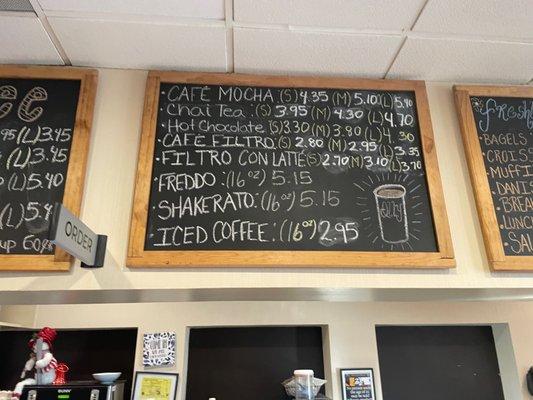 95 (L) 3.45
(L) 3.45
(L) 5.40
(L) 5.4
up 60¢
ORDER
• CAFÉ MOCHA: (S) 4.35 (M) 5.10 (L) 5.40
• Chai Tea: (S) 3.95 (M) 4.30 (L) 4.70
• Hot Chocolate: (S) 3.30 (M) 3.90 (L) 4.30
• CAFÉ FILTRO: (S) 2.80 (M) 2.95 (L) 3.35
• FILTRO CON LATTE: (S) 2.70 (M) 3.10 (L) 3.70
• FREDDO: (16oz) 5.15
• SHAKERATO: (16oz) 5.15
• ICED COFFEE: (16oz) 2.95
BAGELS
CROISS
MUFFI
DANIS
BREAK
LUNCH
SAL